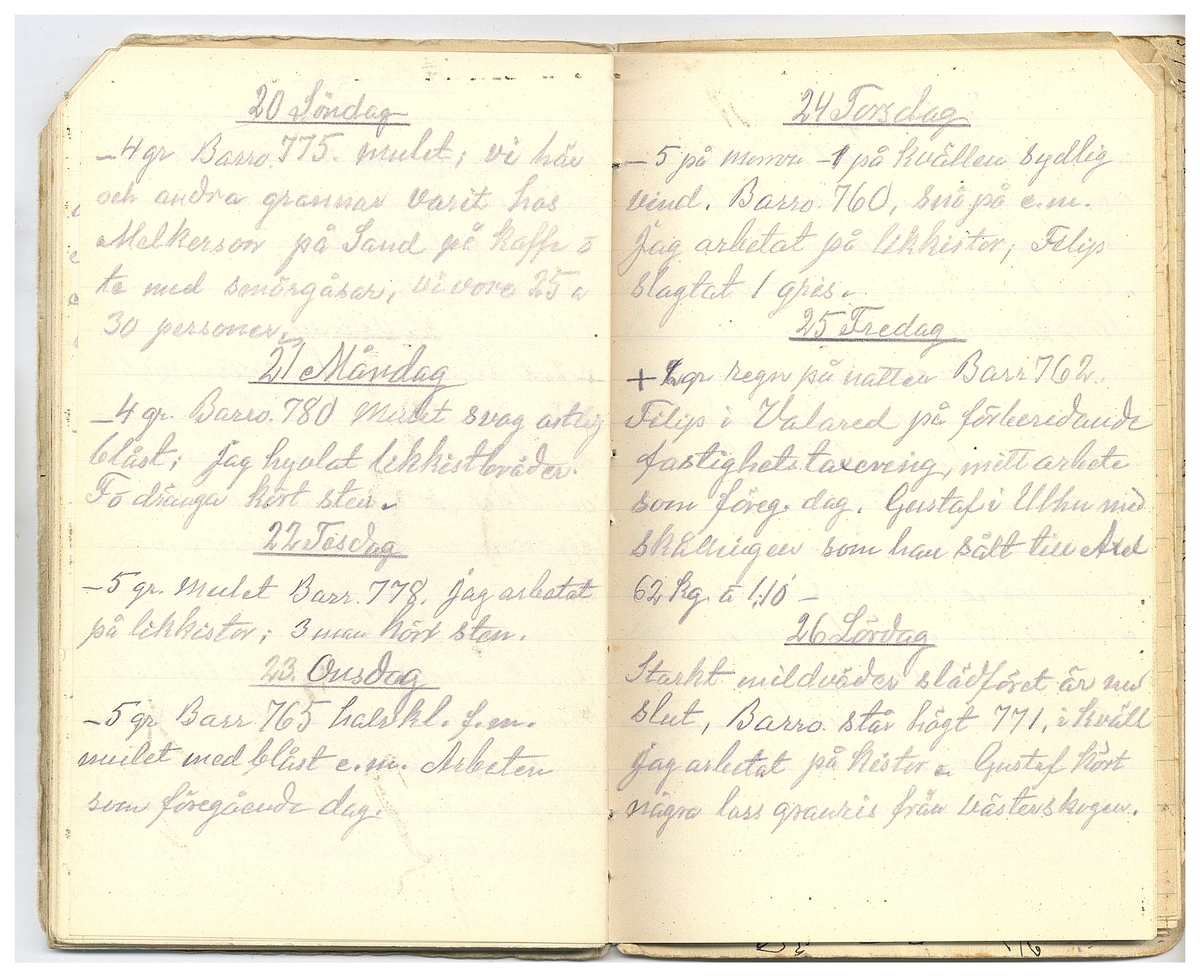 20 Söndag
-4 gr Barro. 775. mulet; vi här
och andra grannar varit hos
Melkerson på Sand på kaffe o
te med smörgåsar, vi vore 25 a
30 personer.
21 Måndag
-4 gr. Barro. 780 Mulet svag ostlig
blåst; jag hyvlat likkistbräder.
To drängar kört sten.
22 Tisdag
-5 gr. Mulet Barr. 778. jag arbetat
på likkistor; 3 man kört sten.
23. Onsdag
-5 gr Barr 765 halvkl. f.m.
mulet med blåst e.m. Arbeten
som föregående dag.
24 Torsdag
-5 på morron -1 på kvällen sydlig
vind. Barro. 760, snö på e.m.
Jag arbetat på likkistor, Filip
slagtat 1 gris.
25 Fredag
+2 gr regn på natten Barr 762.
Filip i Valared på förberedande
fastighetstaxering, mitt arbete
som föreg. dag. Gustaf i Ulhu med
som han sålt till
62 kg. á 1,10 -
26 Lördag
Starkt mildväder slädföret är nu
slut, Barro. står högt 771, i kväll
jag arbetat på kistor. Gustaf kört
några lass granris från västerskogen.